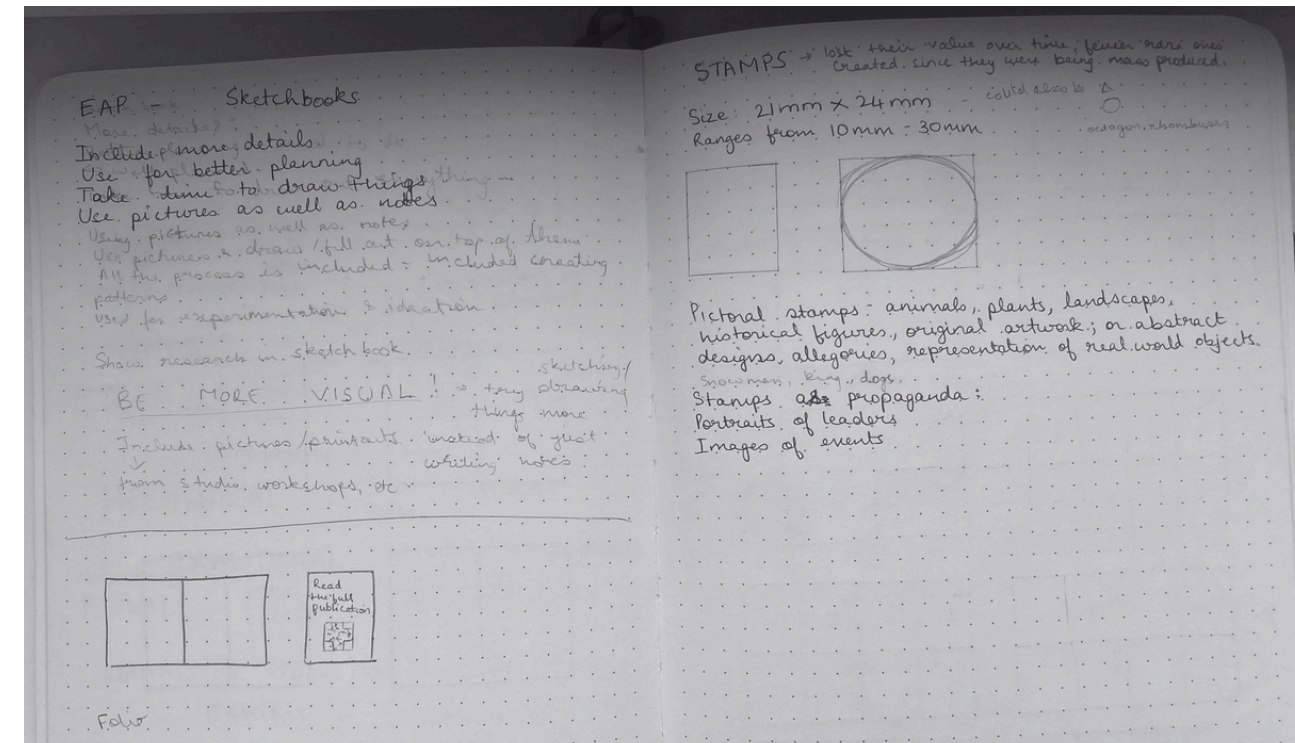 EAP - Sketchbooks
More detailed
Include more details.
Use for better planning
Take time to draw things
Use pictures as well as notes
Using pictures as well as notes
Use pictures & draw / fill out on top of them
All the process is included - included creating
patterns
Used for experimentation & ideation
Show research in sketch book.
BE MORE VISUAL! → try sketching/
drawing
things more
Include pictures/printouts instead of just
writing notes
from studio, workshops, etc
Read
the full
publication
STAMPS → lost their value over time, fewer rare ones
created since they were being mass produced.
Size: 21mm x 24mm - could also be
octagon, rhombuses
Ranges from 10mm - 30mm
Pictoral stamps - animals, plants, landscapes,
historical figures, original artwork; or abstract
designs, allegories, representation of real world objects.
Snowmen, king, dogs,
Stamps as propaganda:
Portraits of leaders
Images of events